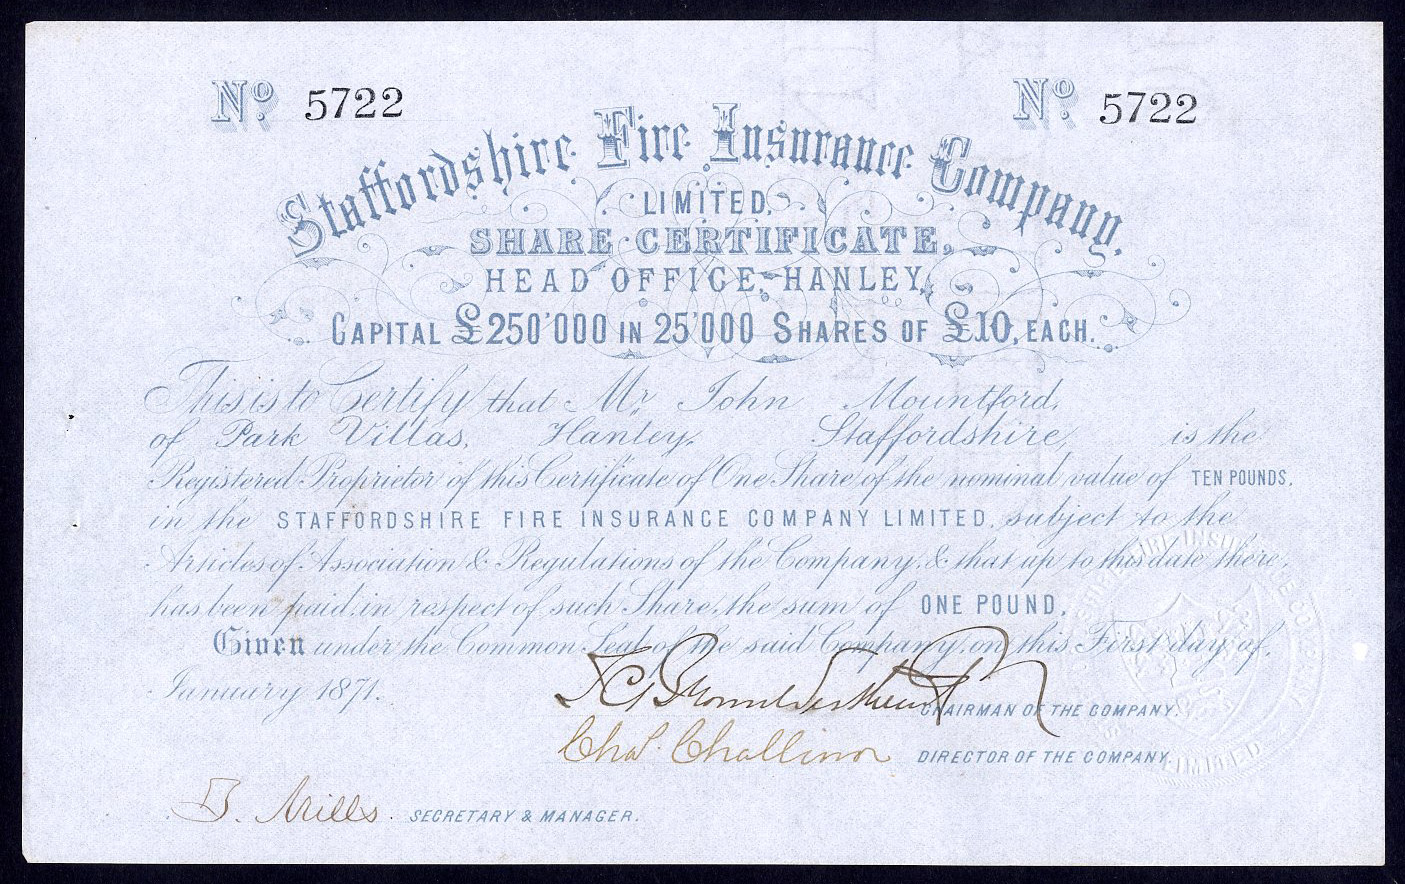 No. 5722 No. 5722
Staffordshire Fire Insurance Company,
LIMITED,
SHARE CERTIFICATE,
HEAD OFFICE,–HANLEY,
CAPITAL £250'000 IN 25'000 SHARES OF £10, EACH.
This is to Certify that Mr. John Mountford,
of Park Villas, Hanley, Staffordshire, is the
Registered Proprietor of this Certificate of One Share of the nominal value of TEN POUNDS,
in the STAFFORDSHIRE FIRE INSURANCE COMPANY LIMITED, subject to the
Articles of Association & Regulations of the Company, & that up to this date there,
has been paid, in respect of such Share, the sum of ONE POUND,
Given under the Common Seal of the said Company, on this First day of,
January 1871.
CHAIRMAN OF THE COMPANY.
Chas. Challinor DIRECTOR OF THE COMPANY.
Mills. SECRETARY & MANAGER.
LIMITED